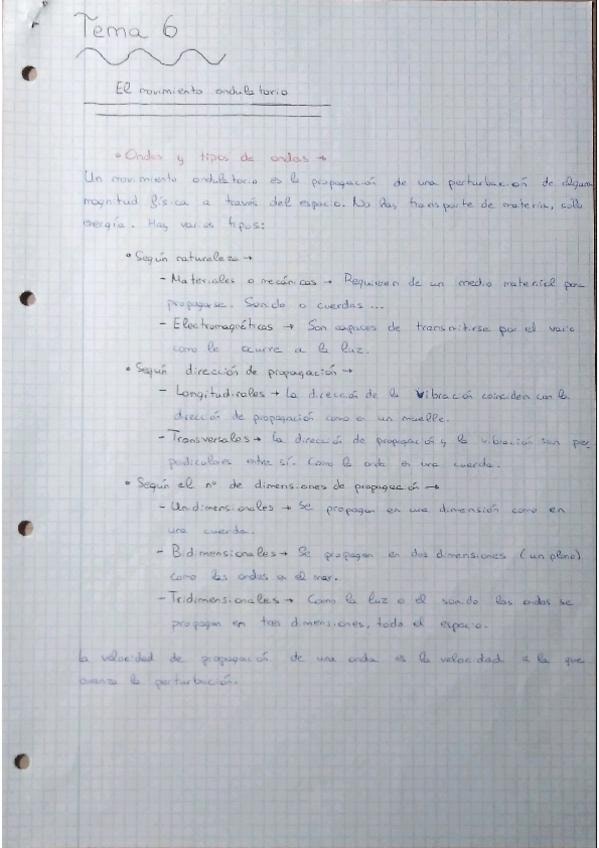 Tema 6
El movimiento ondulatorio
• Ondas y tipos de ondas →
Un movimiento ondulatorio es la propagación de una perturbación de alguna
magnitud física a través del espacio. No hay transporte de materia, sólo
energía. Hay varios tipos:
• Según naturaleza →
- Materiales o mecánicas → Requieren de un medio material para
propagarse. Sonido o cuerdas ...
- Electromagnéticas → Son capaces de transmitirse por el vacío
como le ocurre a la luz.
• Según dirección de propagación →
- Longitudinales → La dirección de la vibración coinciden con la
dirección de propagación como a un muelle.
- Transversales → La dirección de propagación y la vibración son per
pendiculares entre sí. Como la onda en una cuerda.
• Según el nº de dimensiones de propagación →
- Unidimensionales → Se propagan en una dimensión como en
una cuerda.
- Bidimensionales → Se propagan en dos dimensiones (un plano)
como las ondas en el mar.
- Tridimensionales → Como la luz o el sonido las ondas se
propagan en tres dimensiones, todo el espacio.
La velocidad de propagación de una onda es la velocidad a la que
avanza la perturbación.